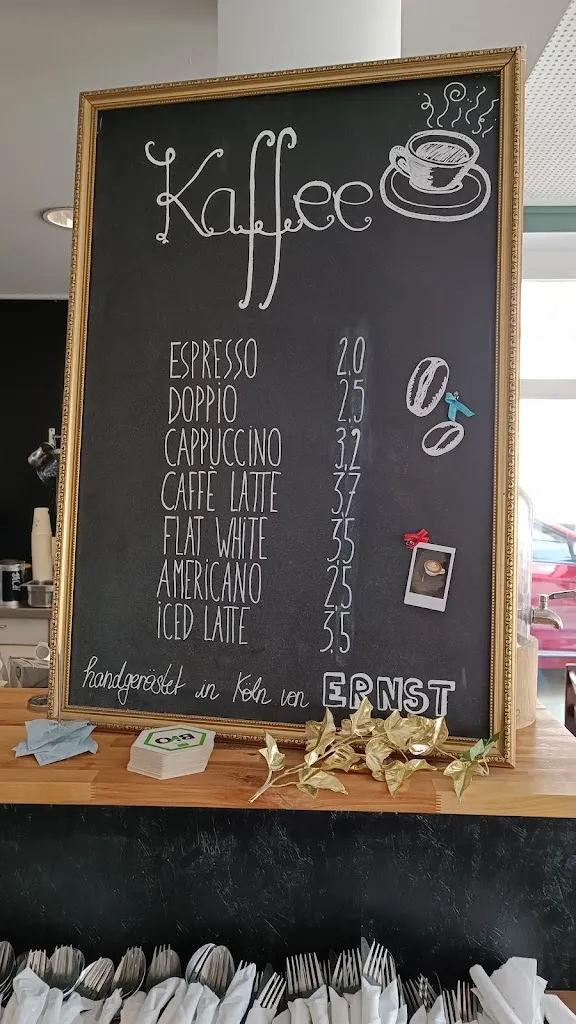 Kaffee
ESPRESSO 2.0
DOPPIO 2.5
CAPPUCCINO 3.2
CAFFÈ LATTE 3.7
FLAT WHITE 3.5
AMERICANO 2.5
iCED LATTE 3.5
handgeröstet in Köln von ERNST
Bio